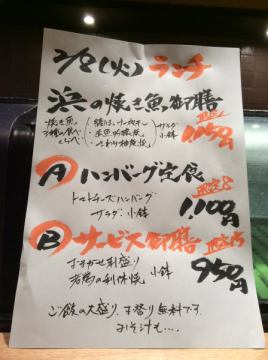 2/8(火) ランチ
浜の焼き魚御膳
焼き魚
3種食べ
くらべ
サラダ
小鉢
さわら柚庵焼
限定
1,150円
A ハンバーグ定食
限定8
トマトチーズハンバーグ
サラダ 小鉢
1,100円
B サービス御膳 限定15
おまかせ刺盛り
若鶏の利休焼 小鉢
950円
ご飯の大盛り、お替り無料です
おみそ汁も....